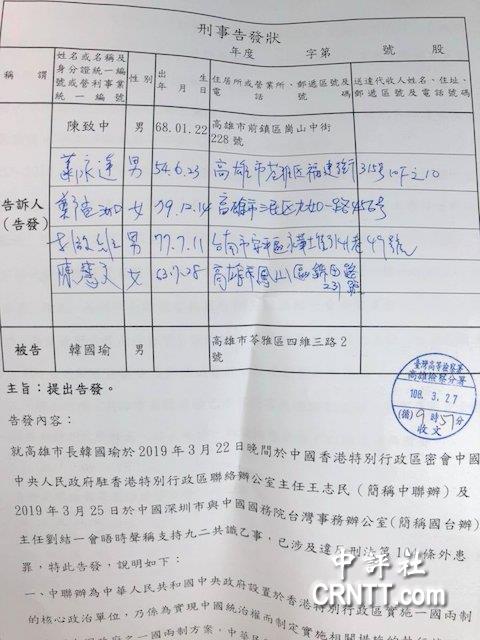 刑事告發狀
年度 字第 號 股
稱謂 姓名或名稱及身分證統一編號或營利事業統一編號 性別 出生年月日 住居所或營業所、郵遞區號及電話號碼 送達代收人姓名、住址、郵遞區號及電話號碼
告訴人(告發)
陳致中 男 68.01.22 高雄市前鎮區崗山中街228號
男 54.6.23 高雄市苓雅區福建街315號10F之10
女 79.12.14 高雄市三民區大如一路456號
男 77.7.11 台南市安平區
陳慧文 女 63.7.28 高雄市鳳山區
被告 韓國瑜 男 高雄市苓雅區四維三路2號
臺灣高等檢察署
高雄檢察分署
108.3.27
9時57分
收文
主旨:提出告發。
告發內容:
就高雄市長韓國瑜於2019年3月22日晚間於中國香港特別行政區密會中國
中央人民政府駐香港特別行政區聯絡辦公室主任王志民(簡稱中聯辦)及
2019年3月25日於中國深圳市與中國國務院台灣事務辦公室(簡稱國台辦)
主任劉結一會晤時聲稱支持九二共識乙事,已涉及違反刑法第104條外患
罪,特此告發,說明如下:
一、中聯辦為中華人民共和國中央政府設置於香港特別行政區實施一國兩制
的核心政治單位,乃係為實現中國統治權而制定實施相關措施
一國兩制方案,中華民
中評社
CRNTT.com